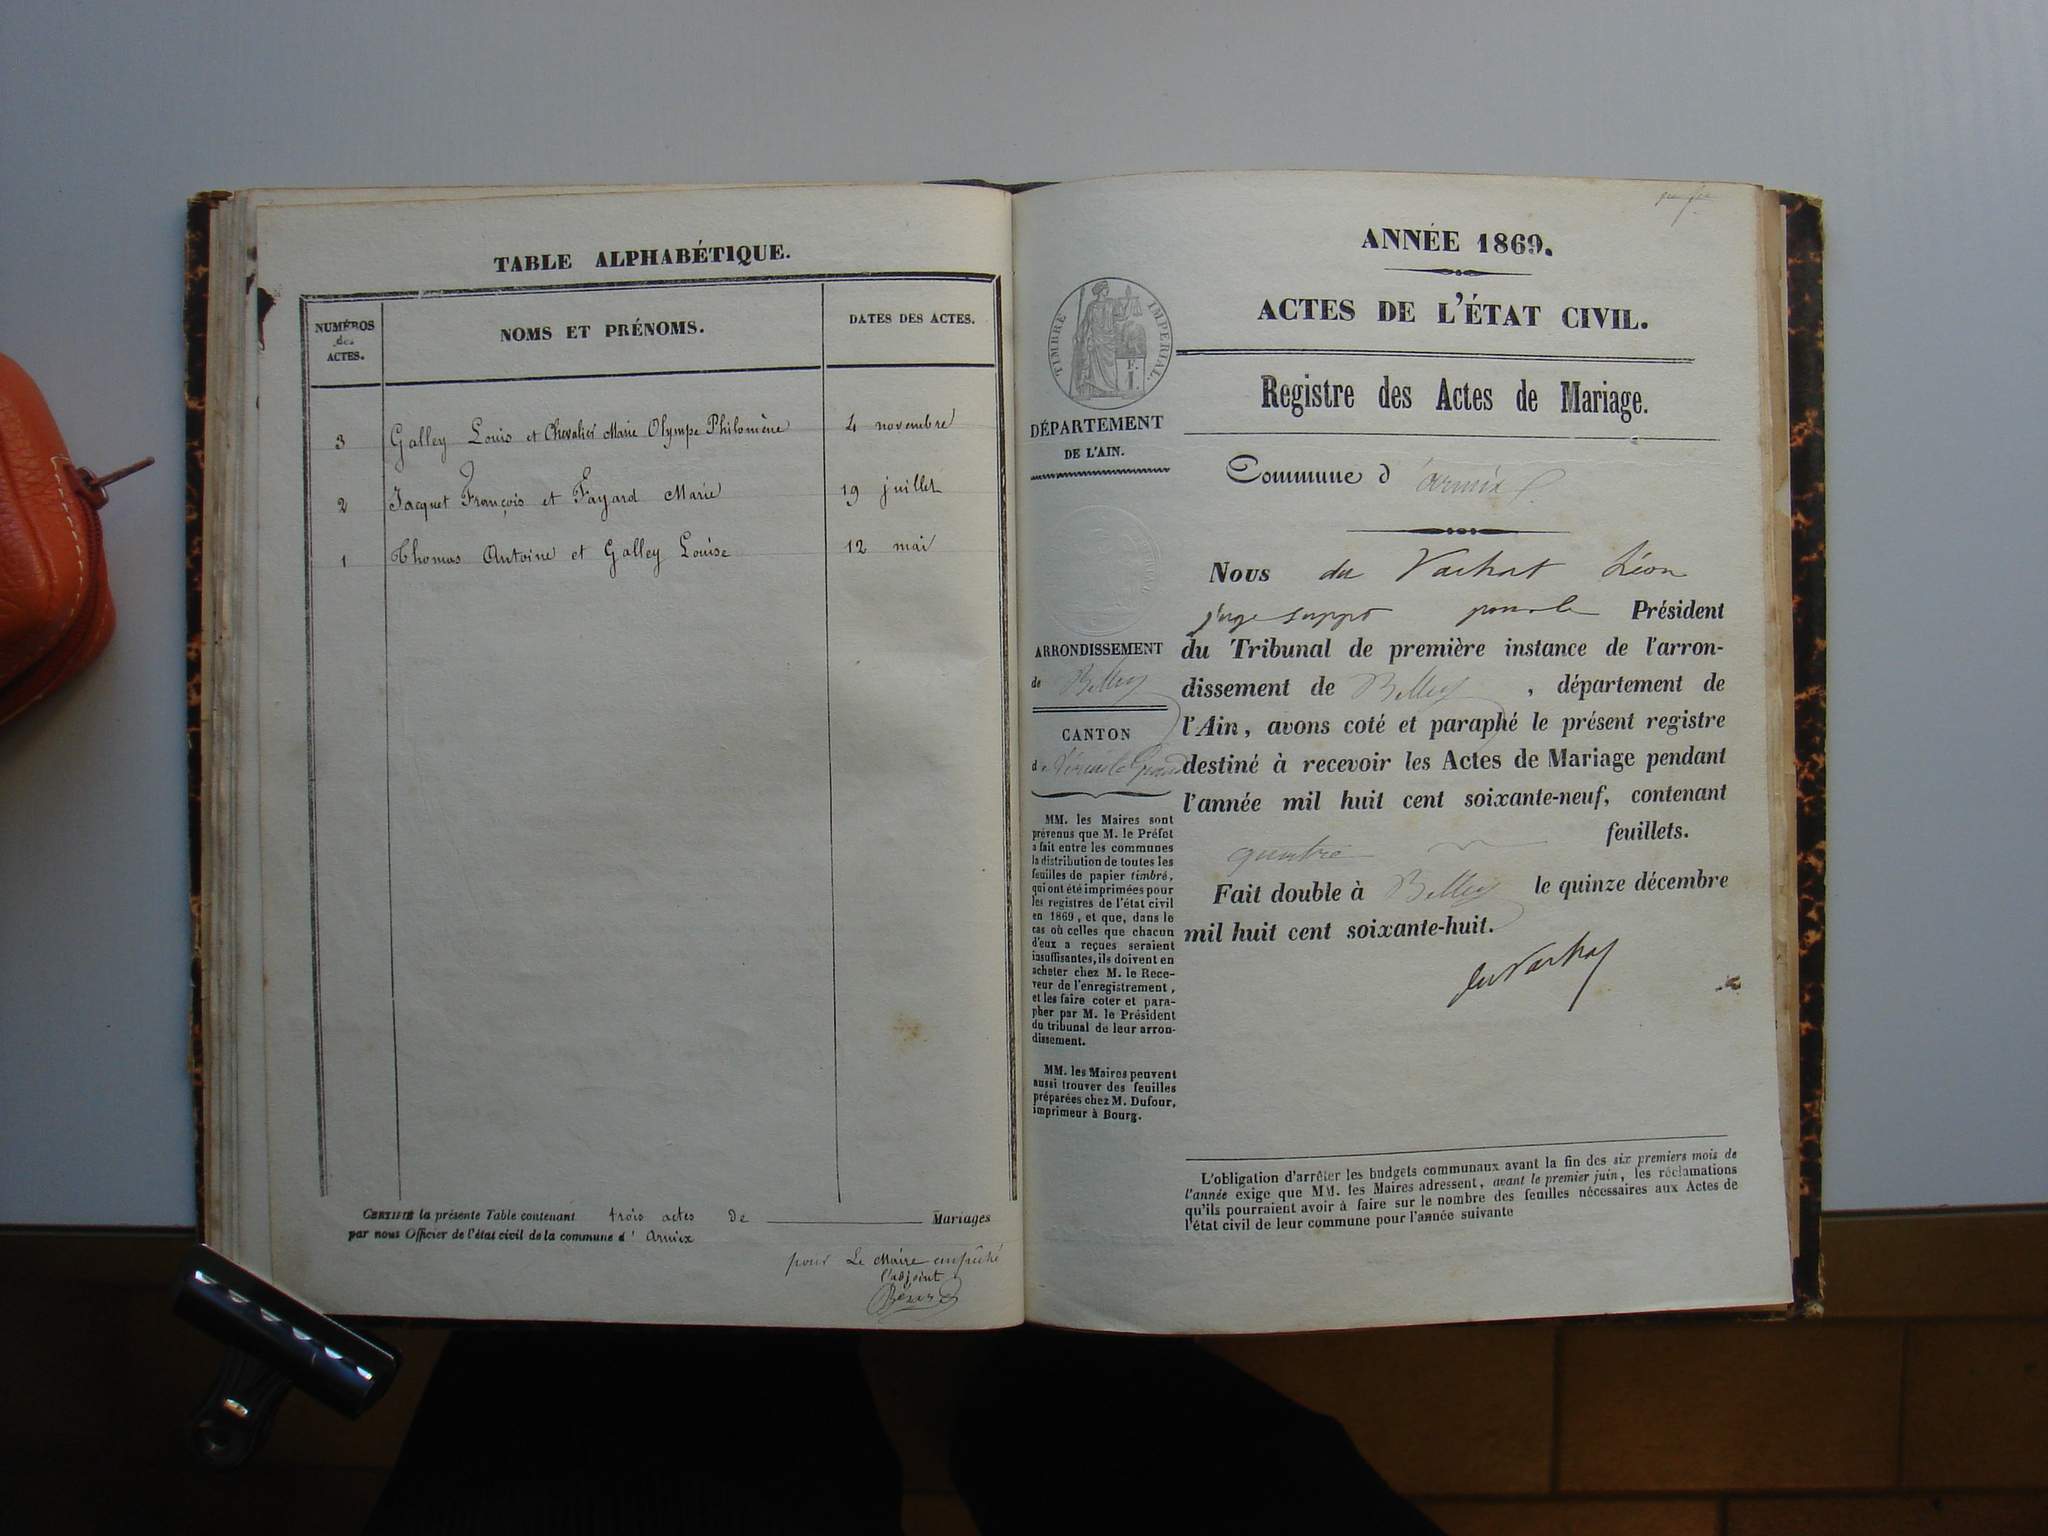 TABLE ALPHABÉTIQUE.
NUMÉROS
des
ACTES.
NOMS ET PRÉNOMS.
DATES DES ACTES.
3 Galley Louis et Chevalier Marie Olympe Philomène 4 novembre
2 Jacquet François et Fayard Marie 19 juillet
1 Thomas Antoine et Galley Louise 12 mai
CERTIFIÉ la présente Table contenant trois actes de Mariages
par nous Officier de l'état civil de la commune d' Armix
pour Le Maire empêché
l'adjoint
ANNÉE 1869.
ACTES DE L'ÉTAT CIVIL.
TIMBRE IMPÉRIAL.
Registre des Actes de Mariage.
DÉPARTEMENT
DE L'AIN.
Commune d'armix
ARRONDISSEMENT
de Belley
CANTON
de Virieu le Grand
MM. les Maires sont
prévenus que M. le Préfet
a fait entre les communes
la distribution de toutes les
feuilles de papier timbré,
qui ont été imprimées pour
les registres de l'état civil
en 1869, et que, dans le
cas où celles que chacun
d'eux a reçues seraient
insuffisantes, ils doivent en
acheter chez M. le Rece-
veur de l'enregistrement,
et les faire coter et para-
pher par M. le Président
du tribunal de leur arron-
dissement.
MM. les Maires peuvent
aussi trouver des feuilles
préparées chez M. Dufour,
imprimeur à Bourg.
Nous du Vachat Léon
juge suppt pour le Président
du Tribunal de première instance de l'arron-
dissement de Belley, département de
l'Ain, avons coté et paraphé le présent registre
destiné à recevoir les Actes de Mariage pendant
l'année mil huit cent soixante-neuf, contenant
quatre feuillets.
Fait double à Belley le quinze décembre
mil huit cent soixante-huit.
du Vachat
L'obligation d'arrêter les budgets communaux avant la fin des six premiers mois de
l'année exige que MM. les Maires adressent, avant le premier juin, les réclamations
qu'ils pourraient avoir à faire sur le nombre des feuilles nécessaires aux Actes de
l'état civil de leur commune pour l'année suivante